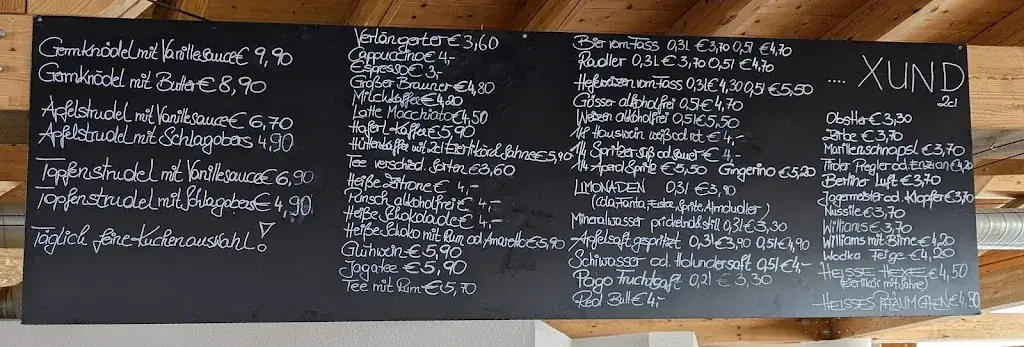 Germknödel mit Vanillesauce € 9,90
Germknödel mit Butter € 8,90
Apfelstrudel mit Vanillesauce € 6,70
Apfelstrudel mit Schlagobers 4,90
Topfenstrudel mit Vanillesauce € 6,90
Topfenstrudel mit Schlagobers € 4,90
Täglich feine Kuchenauswahl!
Verlängerter € 3,60
Cappuccino € 4,-
Espresso € 3,-
Großer Brauner € 4,80
Milchkaffee € 4,20
Latte Macchiato € 4,50
Haferl-Kaffee € 5,90
Hüttenkaffee mit 2cl Eierlikör + Sahne € 5,90
Tee verschied. Sorten € 3,60
Heiße Zitrone € 4,-
Punsch alkoholfrei € 4,-
Heiße Schokolade € 4,-
Heiße Schoko mit Rum od. Amaretto € 5,90
Glühwein € 5,90
Jagatee € 5,90
Tee mit Rum € 5,70
Bier vom Fass 0,3l € 3,70 0,5l € 4,70
Radler 0,3l € 3,70 0,5l € 4,70
Hefeweizen vom Fass 0,3l € 4,30 0,5l € 5,50
Gösser alkoholfrei 0,5l € 4,70
Weizen alkoholfrei 0,5l € 5,50
1/4 Hauswein weiß od. rot € 4,-
1/4 Spritzer süß od. sauer € 4,-
1/4 Aperol Spritz € 5,50 Gingerino € 5,20
LIMONADEN 0,3l € 3,90
(Cola, Fanta, Sprite, Almdudler)
Mineralwasser prickelnd, still 0,3l € 3,30
Apfelsaft gespritzt 0,3l € 3,90 0,5l € 4,90
Schiwasser od. Holundersaft 0,5l € 4,-
Pago Fruchtsaft 0,2l € 3,30
Red Bull € 4,-
.... XUND
2cl
Obstler € 3,30
Zirbe € 3,70
Marillenschnaps € 3,70
Tiroler Riegler od. Enzian € 4,20
Berliner Luft € 3,70
Jägermaster od. Klopfer € 3,70
Nussile € 3,70
Willians € 3,70
Williams mit Birne € 4,20
Wodka Feige € 4,20
HEISSE HEXE € 4,50
(Eierlikör mit Sahne)
HEISSES PFLÄUMCHEN € 4,50